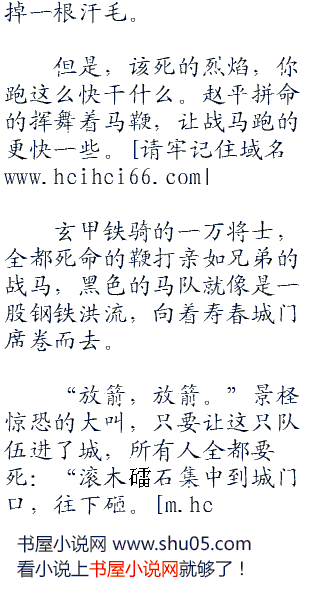 掉一根汗毛。
但是，该死的烈焰，你
跑这么快干什么。赵平拼命
的挥舞着马鞭，让战马跑的
更快一些。[请牢记住域名
www.hcihci66.com|
玄甲铁骑的一万将士，
全都死命的鞭打亲如兄弟的
战马，黑色的马队就像是一
股钢铁洪流，向着寿春城门
席卷而去。
“放箭，放箭。”景怪
惊恐的大叫，只要让这只队
伍进了城，所有人全都要
死：“滚木礌石集中到城门
口，往下砸。[m.hc
书屋小说网 www.shu05.com
看小说上书屋小说网就够了！